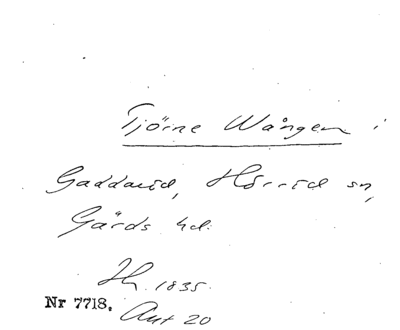 Tjörne Wången i
Gaddavid, Hörrid sn,
Gärds hd.
Hh. 1835.
Nr 7718.
Aut 20